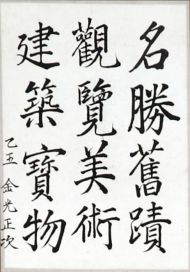 名勝舊蹟
觀覽美術
建築寶物
乙丑 金光正次